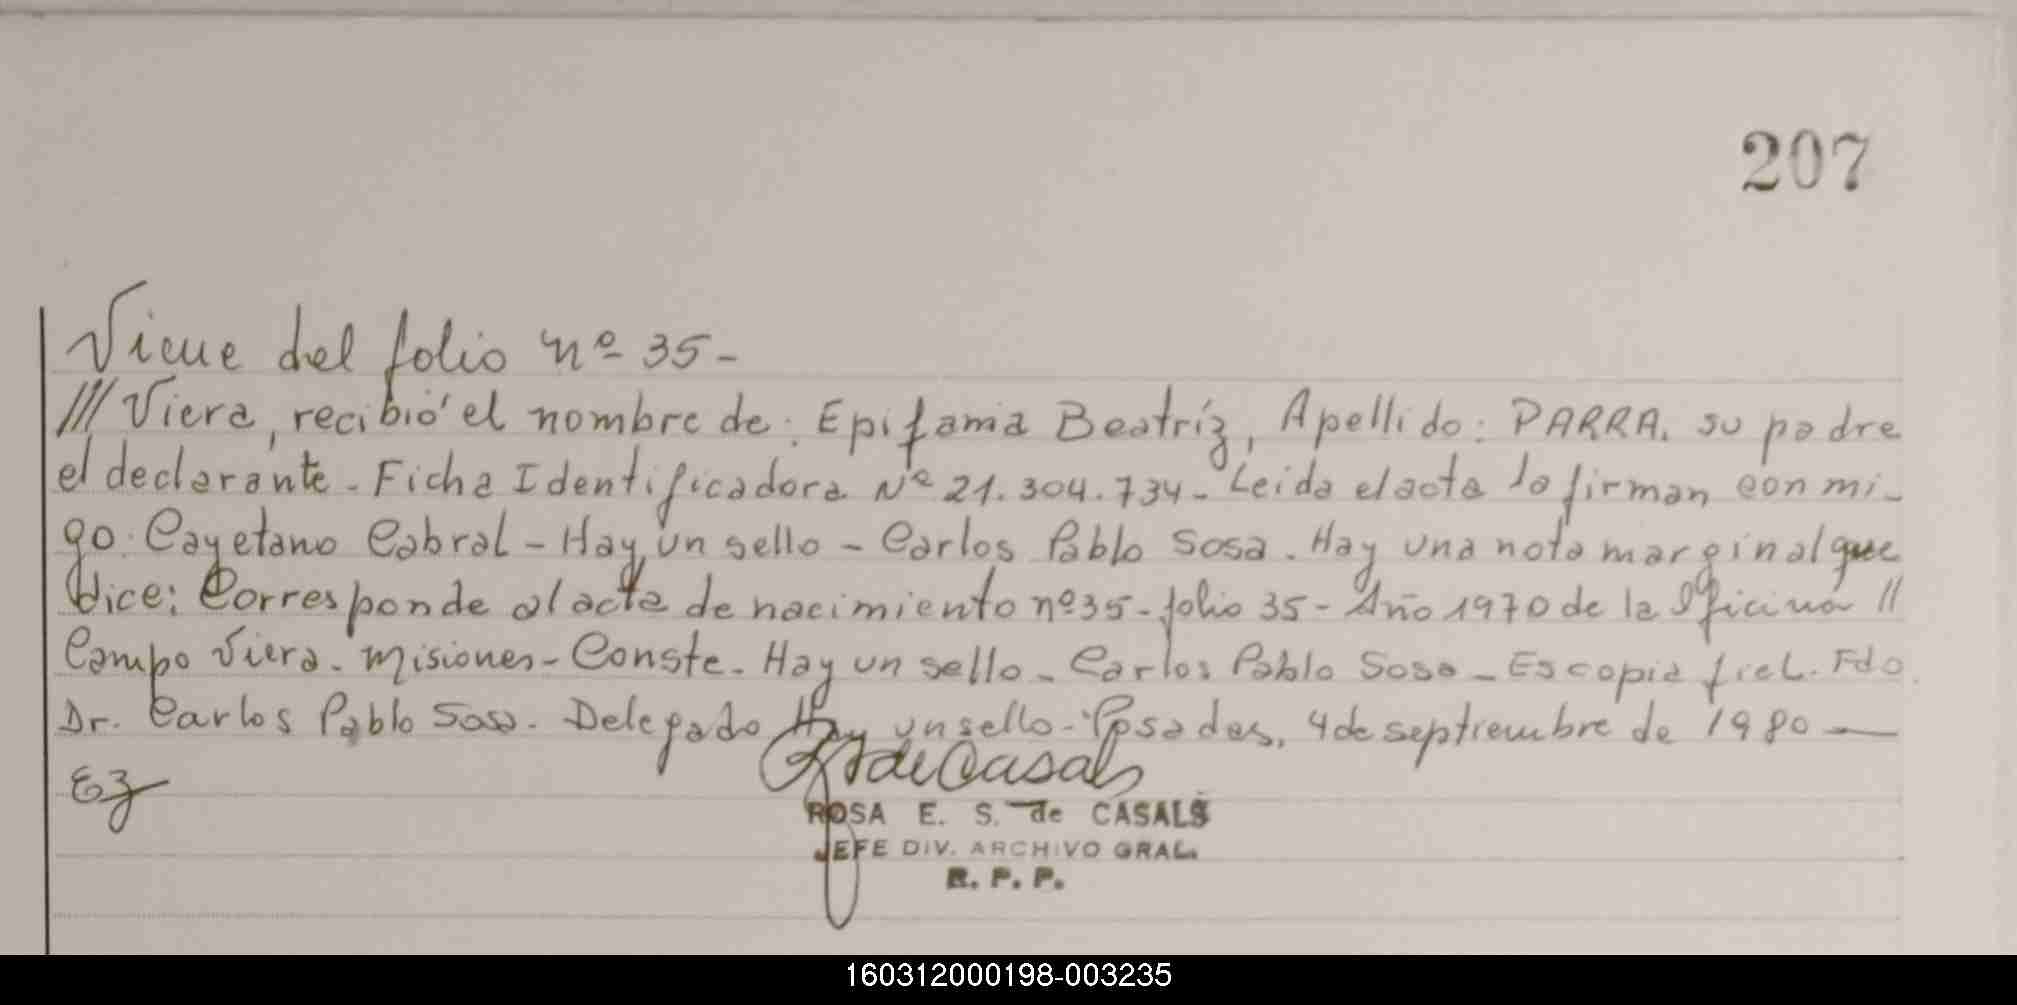 207
Viene del folio nº 35-
/// Viera, recibió el nombre de: Epifania Beatríz, Apellido: PARRA. su padre
el declarante. Ficha Identificadora Nº 21.304.734- Leida el acta la firman conmi-
go: Cayetano Cabral - Hay un sello - Carlos Pablo Sosa. Hay una nota marginal que
dice: Corresponde al acta de nacimiento nº35- folio 35- Año 1970 de la Oficina //
Campo Viera. Misiones- Conste. Hay un sello - Carlos Pablo Sosa - Es copia fiel. Fdo.
Dr. Carlos Pablo Sosa. Delegado Hay un sello- Posadas, 4 de septiembre de 1980 —
Ez
R S de Casals
ROSA E. S. de CASALS
JEFE DIV. ARCHIVO GRAL.
R. P. P.
160312000198-003235